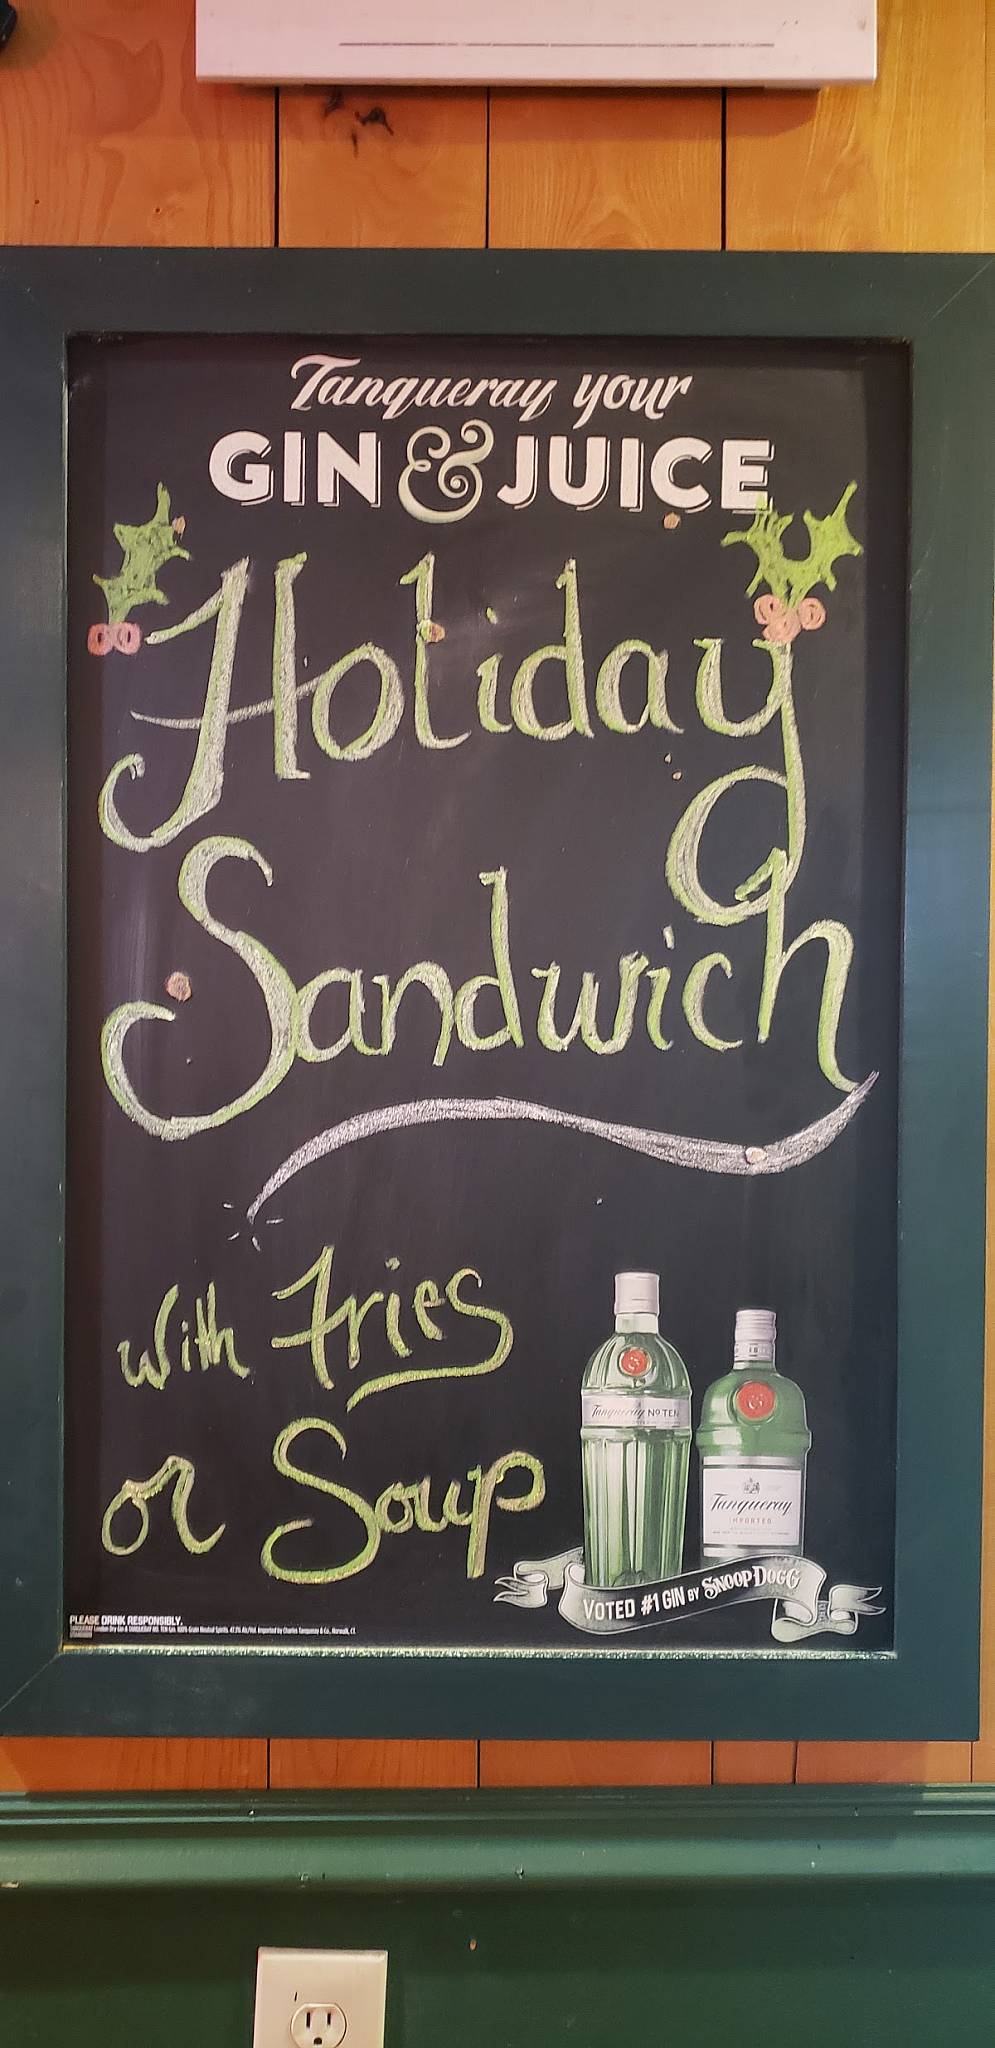 Tanqueray your
GIN & JUICE
Holiday
Sandwich
with Fries
or Soup
Tanqueray No TEN
Tanqueray
IMPORTED
VOTED #1 GIN BY SNOOP DOGG
PLEASE DRINK RESPONSIBLY.